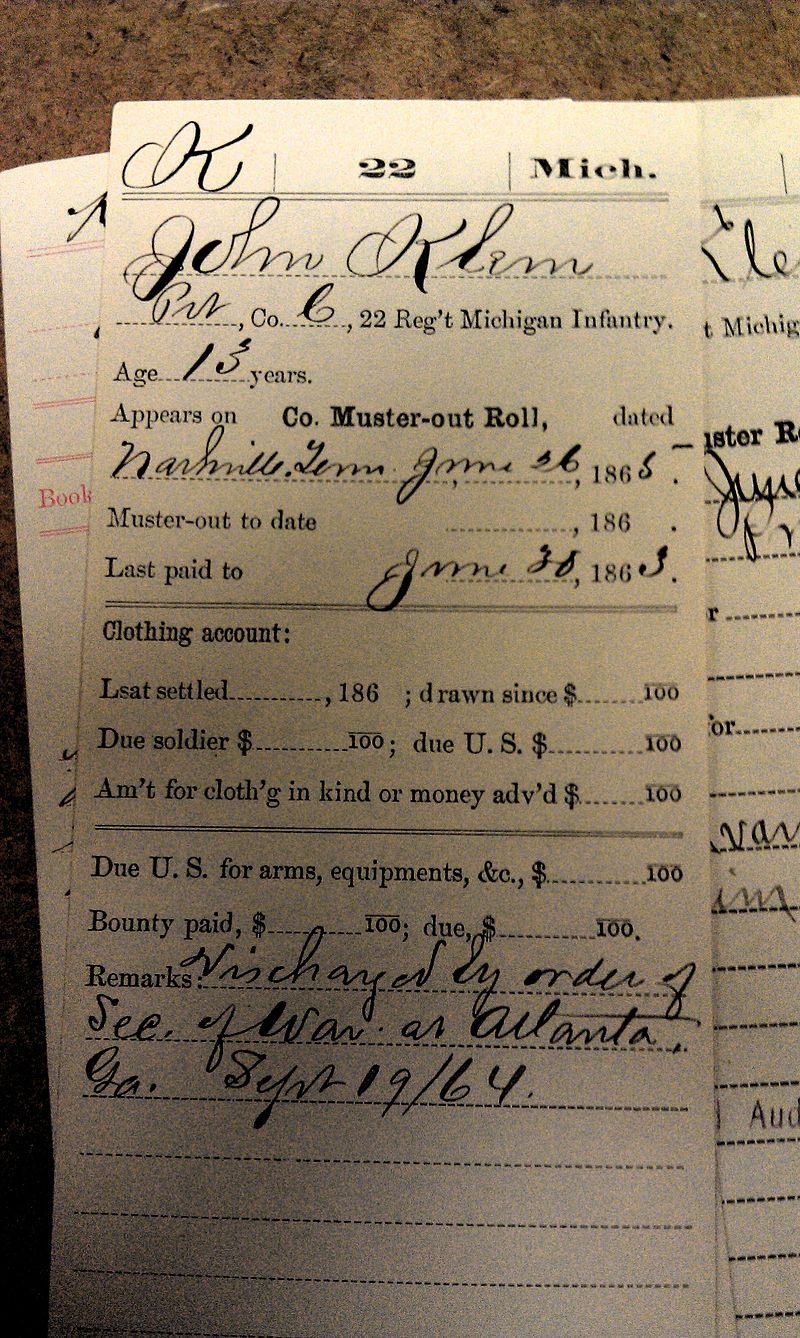 K | 22 | Mich.
John Klem
Pvt, Co. C, 22 Reg't Michigan Infantry.
Age 13 years.
Appears on Co. Muster-out Roll, dated
Nashville, Tenn June 26, 1865.
Muster-out to date , 186 .
Last paid to June 30, 1863.
Clothing account:
Lsat settled , 186 ; drawn since $ 100
Due soldier $ 100; due U. S. $ 100
Am't for cloth'g in kind or money adv'd $ 100
Due U. S. for arms, equipments, &c., $ 100
Bounty paid, $ 100; due, $ 100.
Remarks: Discharged by order of
Sec. of War at Atlanta,
Ga. Sept 19/64.
Book
t Michig
ster R
r
or
Aud